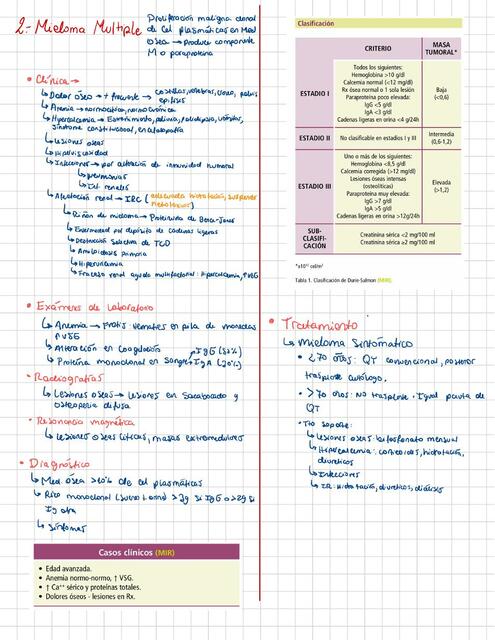 2.- Mieloma Multiple
Proliferación maligna clonal
de Cel plasmáticas en Med
Osea → produce componente
M o paraproteina
• Clínica →
↳ Dolor óseo → + frecuente → costillas, vertebras, cráneo, pelvis
epífisis
↳ Anemia → normocítica, normocrómica
↳ Hipercalcemia → Estreñimiento, poliuria, polidipsia, vómitos,
síndrome constitucional, encefalopatía
↳ lesiones óseas
↳ Hiperviscosidad
↳ Infecciones → por alteración de inmunidad humoral
↳ neumonías
↳ Inf. renales
↳ Afectación renal → IRC (adecuada hidratación, suspender
↳ Riñón de mieloma → Proteinuria de Bence-Jones
↳ Enfermedad por depósito de cadenas ligeras
↳ Destrucción selectiva de TCD
↳ Amiloidosis primaria
↳ Hiperuricemia
↳ Fracaso renal agudo multifactorial: Hipercalcemia,
• Exámenes de Laboratorio
↳ Anemia → Frotis: Hematíes en pila de monedas
↑ VSG
↳ Alteración en coagulación
↳ Proteína monoclonal en sangre
IgG (52%)
IgA (20%)
• Radiografías
↳ Lesiones oseas → Lesiones en Sacabocado y
osteopenia difusa
• Resonancia magnética
↳ lesiones oseas líticas, masas extramedulares
• Diagnóstico
↳ Med ósea >10% de cel plasmáticas
↳ Pico monoclonal (suero u orina) >3g si IgG o >2g si
Ig otra
↳ Síntomas
Casos clínicos (MIR)
• Edad avanzada.
• Anemia normo-normo, ↑ VSG.
• ↑ Ca⁺⁺ sérico y proteínas totales.
• Dolores óseos - lesiones en Rx.
Clasificación
CRITERIO
MASA
TUMORAL*
ESTADIO I
Todos los siguientes:
Hemoglobina >10 g/dl
Calcemia normal (<12 mg/dl)
Rx ósea normal o 1 sola lesión
Paraproteína poco elevada:
IgG <5 g/dl
IgA <3 g/dl
Cadenas ligeras en orina <4 g/24h
Baja
(<0,6)
ESTADIO II
No clasificable en estadios I y III
Intermedia
(0,6-1,2)
ESTADIO III
Uno a más de los siguientes:
Hemoglobina <8,5 g/dl
Calcemia corregida (>12 mg/dl)
Lesiones óseas intensas
(osteolíticas)
Paraproteína muy elevada:
IgG >7 g/dl
IgA >5 g/dl
Cadenas ligeras en orina >12g/24h
Elevada
(>1,2)
SUB-
CLASIFI-
CACIÓN
Creatinina sérica <2 mg/100 ml
Creatinina sérica ≥2 mg/100 ml
*x10¹² cel/m²
Tabla 1. Clasificación de Durie-Salmon (MIR).
• Tratamiento
↳ Mieloma Sintomático
• <70 años: QT convencional, posterior
trasplante autólogo.
• >70 años: NO trasplante. Igual pauta de
QT
• Tto soporte:
↳ Lesiones oseas: bifosfonato mensual
↳ Hipercalcemia: corticoides, hidratación,
diureticos
↳ Infecciones
↳ IR: Hidratación, diureticos, dialisis